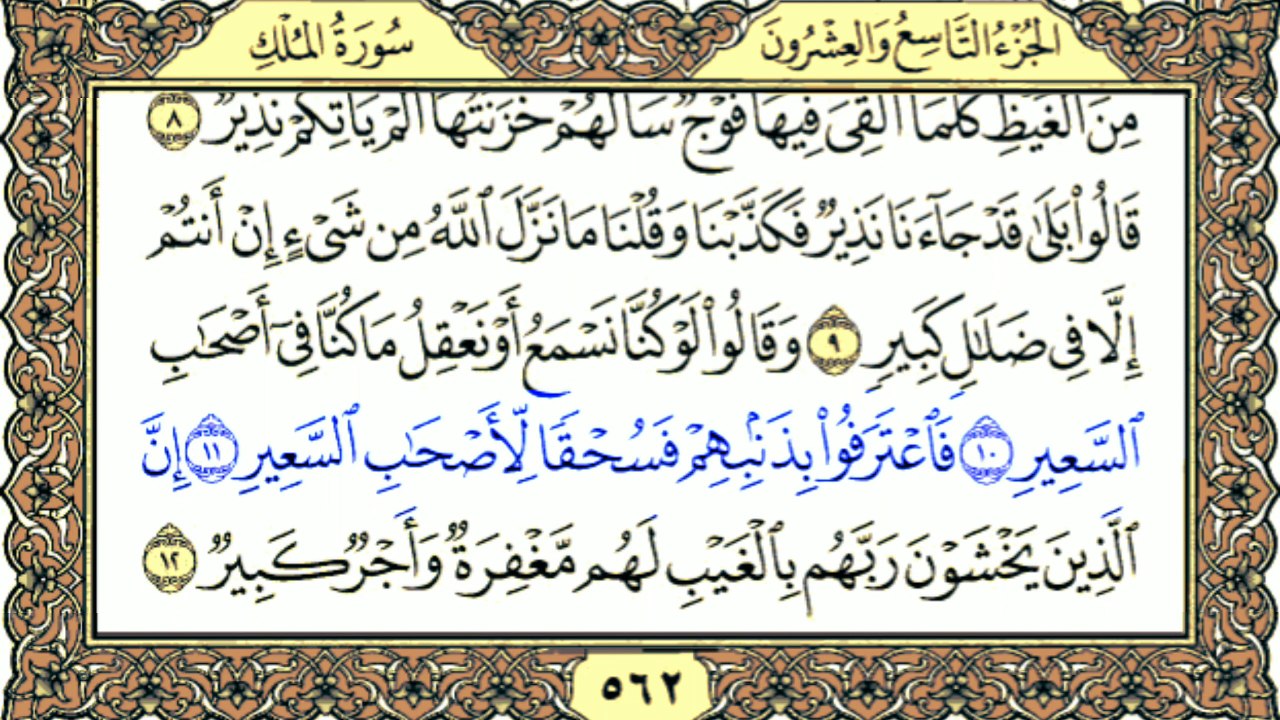 الجُزْءُ التَّاسِعُ وَالعِشْرُونَ
سُورَةُ المُلْكِ
مِنَ ٱلْغَيْظِ كُلَّمَآ أُلْقِيَ فِيهَا فَوْجٌ سَأَلَهُمْ خَزَنَتُهَآ أَلَمْ يَأْتِكُمْ نَذِيرٌ ٨
قَالُوا۟ بَلَىٰ قَدْ جَآءَنَا نَذِيرٌ فَكَذَّبْنَا وَقُلْنَا مَا نَزَّلَ ٱللَّهُ مِن شَىْءٍ إِنْ أَنتُمْ
إِلَّا فِى ضَلَـٰلٍ كَبِيرٍ ٩ وَقَالُوا۟ لَوْ كُنَّا نَسْمَعُ أَوْ نَعْقِلُ مَا كُنَّا فِىٓ أَصْحَـٰبِ
ٱلسَّعِيرِ ١٠ فَٱعْتَرَفُوا۟ بِذَنۢبِهِمْ فَسُحْقًا لِّأَصْحَـٰبِ ٱلسَّعِيرِ ١١ إِنَّ
ٱلَّذِينَ يَخْشَوْنَ رَبَّهُم بِٱلْغَيْبِ لَهُم مَّغْفِرَةٌ وَأَجْرٌ كَبِيرٌ ١٢
٥٦٢